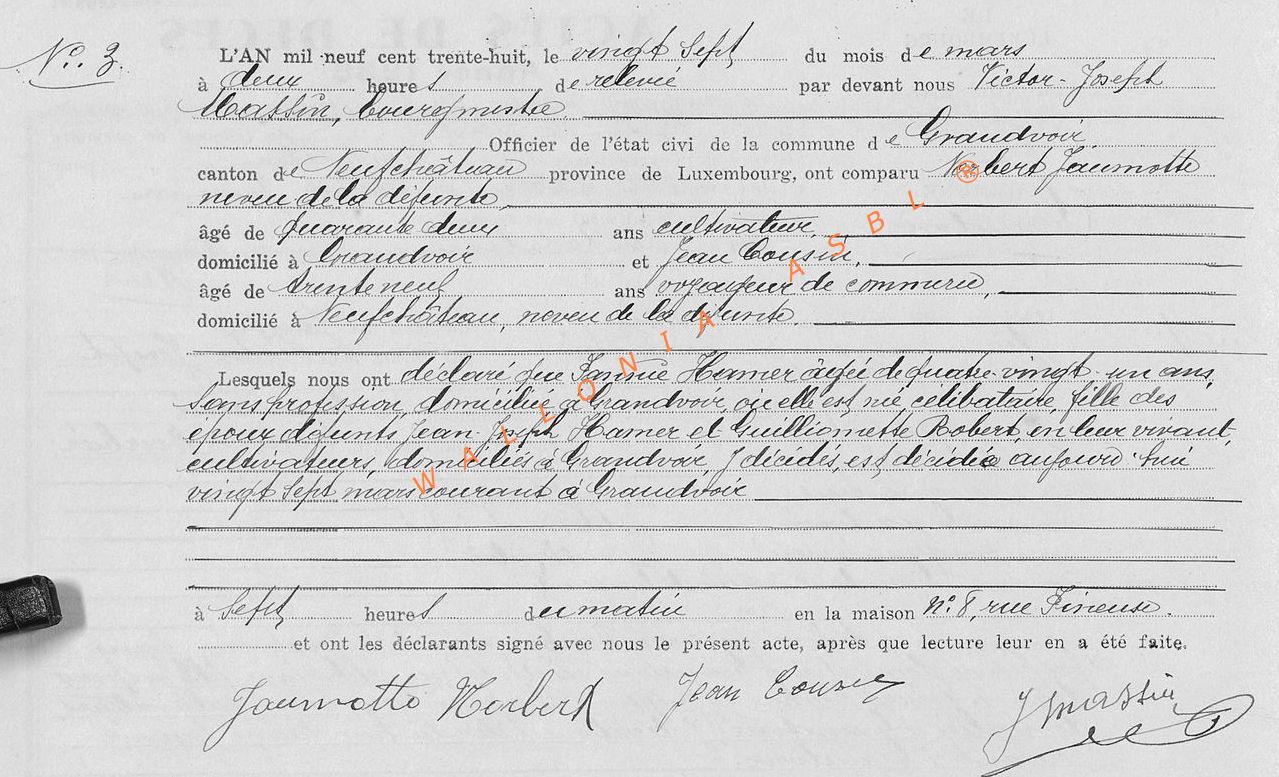 N° 3.
L'AN mil neuf cent trente-huit, le vingt sept du mois de mars
à deux heures de relevée par devant nous Victor-Joseph
Massin, bourgmestre
Officier de l'état civi de la commune de Grandvoir
canton de Neufchâteau province de Luxembourg, ont comparu Norbert Jaumotte
neveu de la défunte,
âgé de quarante deux ans cultivateur,
domicilié à Grandvoir et Jean Cousin,
âgé de trente neuf ans voyageur de commerce,
domicilié à Neufchâteau, neveu de la défunte,
Lesquels nous ont déclaré que Hamer âgée de quatre-vingt-un ans,
sans profession, domiciliée à Grandvoir, où elle est née célibataire, fille des
époux défunts Jean-Joseph Hamer et Guilliomette Robert, en leur vivant,
cultivateurs, domiciliés à Grandvoir, y décédés, est décédée aujourd'hui
vingt sept mars courant à Grandvoir
à sept heures du matin en la maison N° 8, rue Fineuse.
et ont les déclarants signé avec nous le présent acte, après que lecture leur en a été faite.
Jaumotte Norbert Jean Cousin J Massin
WALLONIA ASBL ®